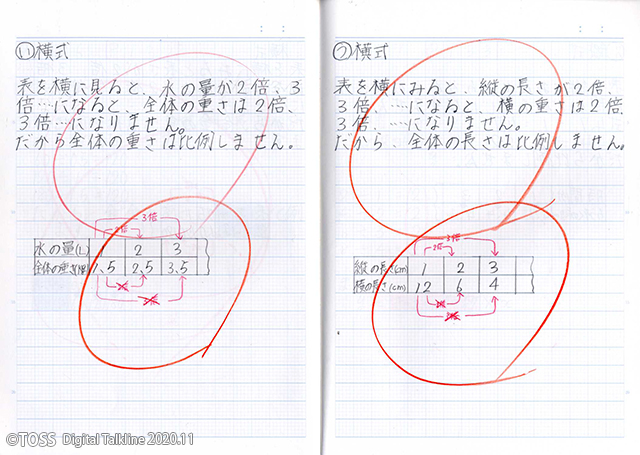 : :
(い)横式
表を横に見ると、水の量が2倍、3
倍…になると、全体の重さは2倍、
3倍…になりません。
だから全体の重さは比例しません。
3倍
2倍
水の量(L) 1 2 3
全体の重さ(kg) 1.5 2.5 3.5
2倍
3倍
: :
(う)横式
表を横にみると、縦の長さが2倍、
3倍、…になると、横の重さは2倍、
3倍、…になりません。
だから、全体の長さは比例しません。
3倍
2倍
縦の長さ(cm) 1 2 3
横の長さ(cm) 12 6 4
2倍
3倍
©TOSS Digital Talkline 2020.11